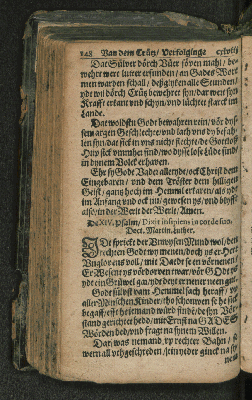 148 Van dem Crütz / Verfolginge
Dat Sülver dörch Vüer söven mahl / be-
wehrt wert lutter erfunden / an Gades Wort
men warden schall / desglyken alle Stunden /
ydt wil dörch Crütz bewehret syn / dar wert syn
Krafft erkant und schyn / und lüchtet starck im
Lande.
Dat woldstu Godt bewahren rein / vör düs-
sem argen Geschlechte / und lath uns dy befah-
len syn / dat sick in uns nicht flechte / de Gottlose
Hup sick ummher find / wo dysse lose Lüde sind /
in dynem Volck erhaven.
Ehr sy Godt Vader alletydt / ock Christ dem
Eingebaren / und dem Tröster dem hilligen
Geist / gantz hoch im Hemmel erfaren / als ydt
im Anfang und ock nu / gewesen ys / und blyfft
also / in der Werlt der Werlt / Amen.
De XIV. Psalm / Dixit insipiens in corde suo,
Doct. Martin. Luther.
IDt sprickt der Unwysen Mund wol / den
rechten Godt wy menen / doch ys er Hert
Unglovens vol / mit Daedt se en vörnenen /
Er Wesent ys vördorven twar / vör Godt ys
ydt ein Grüwel gar / ydt deyt erer nener neen gut.
Godt sülvst vam Hemmel sach heraff / up
aller Minschen Kinder / tho schouwen se he sick
begaff / efft he jemand würd finde / de syn Vör-
stand gerichtet hedd / mit Ernst na GADES
Wörden ded / und fragt na synem Willen.
Dar was nemand up rechter Bahn / se
wern all uthgeschreden / ein yeder ginck na sy-
nem